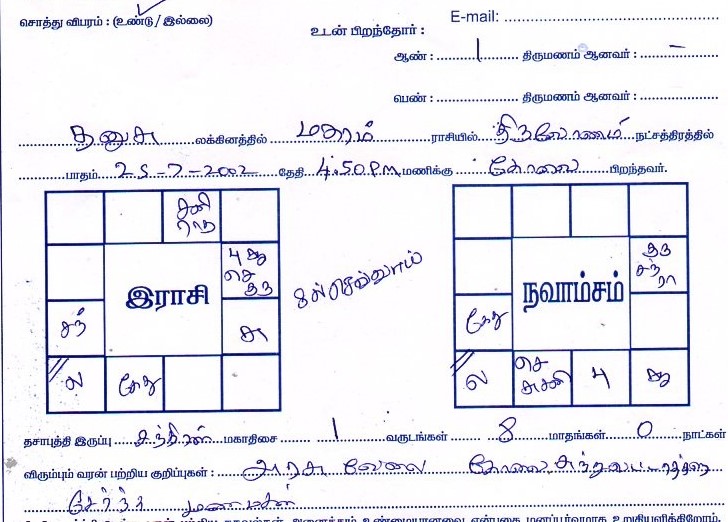 சொத்து விபரம் : (உண்டு / இல்லை)
E-mail:
உடன் பிறந்தோர் :
ஆண் : 1 திருமணம் ஆனவர் : –
பெண் : திருமணம் ஆனவர் :
தனுசு லக்கினத்தில் மகரம் ராசியில் திருவோணம் நட்சத்திரத்தில்
பாதம் 25-7-2002 தேதி 4.50 P.m மணிக்கு கோவை பிறந்தவர்.
சனி
ரா
பு சு
செ
குரு
இராசி
8ல் செவ்வாய்
சந்
சு
ல
கேது
குரு
சந்
ரா
நவாம்சம்
கேது
ல
செ
சனி
பு
சு
தசாபுத்தி இருப்பு சந்திரன் மகாதிசை 1 வருடங்கள் 8 மாதங்கள் 0 நாட்கள்
விரும்பும் வரன் பற்றிய குறிப்புகள் : அரசு வேலை கோவை
சேர்ந்த மணமகன்